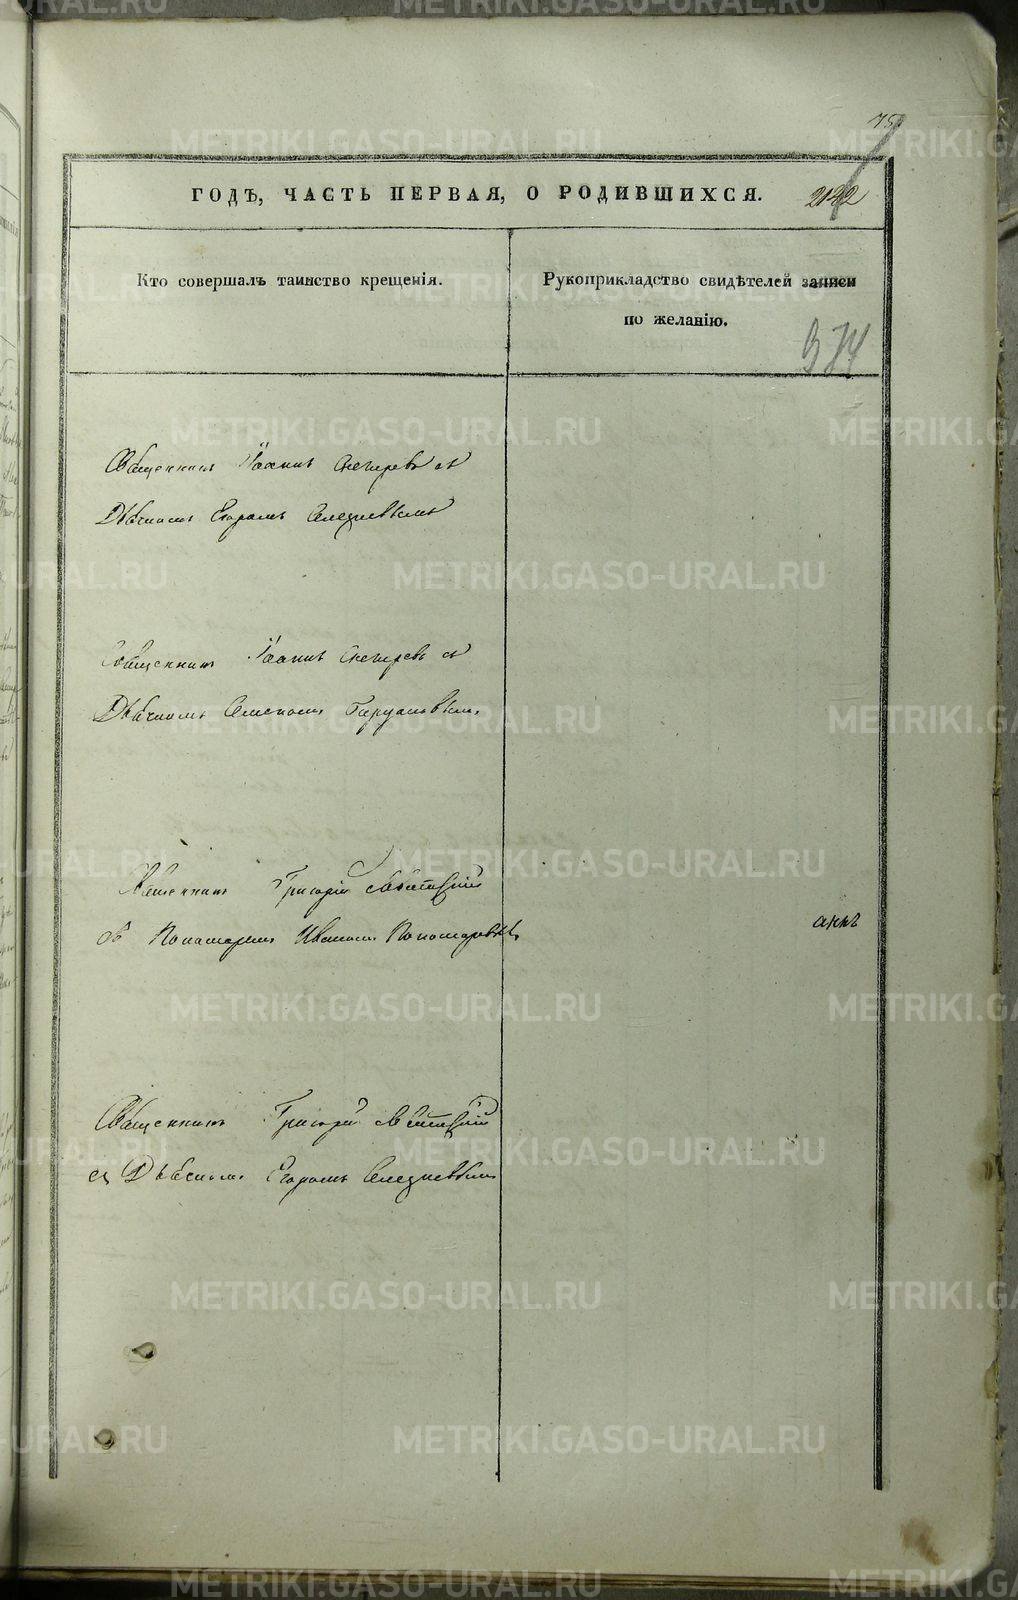 75
ГОДЪ, ЧАСТЬ ПЕРВАЯ, О РОДИВШИХСЯ.
Кто совершалъ таинство крещенія.
Рукоприкладство свидѣтелей записи
по желанію.
374
Священникъ Іоаннъ Снегиревъ съ
Дьячкомъ Егоромъ Селезневымъ
Священникъ Іоаннъ Снегиревъ съ
Дьячкомъ
Священникъ Григорій
съ Пономаремъ Иваномъ Пономаревымъ
Священникъ Григорій
съ Дьячкомъ Егоромъ Селезневымъ
METRIKI.GASO-URAL.RU